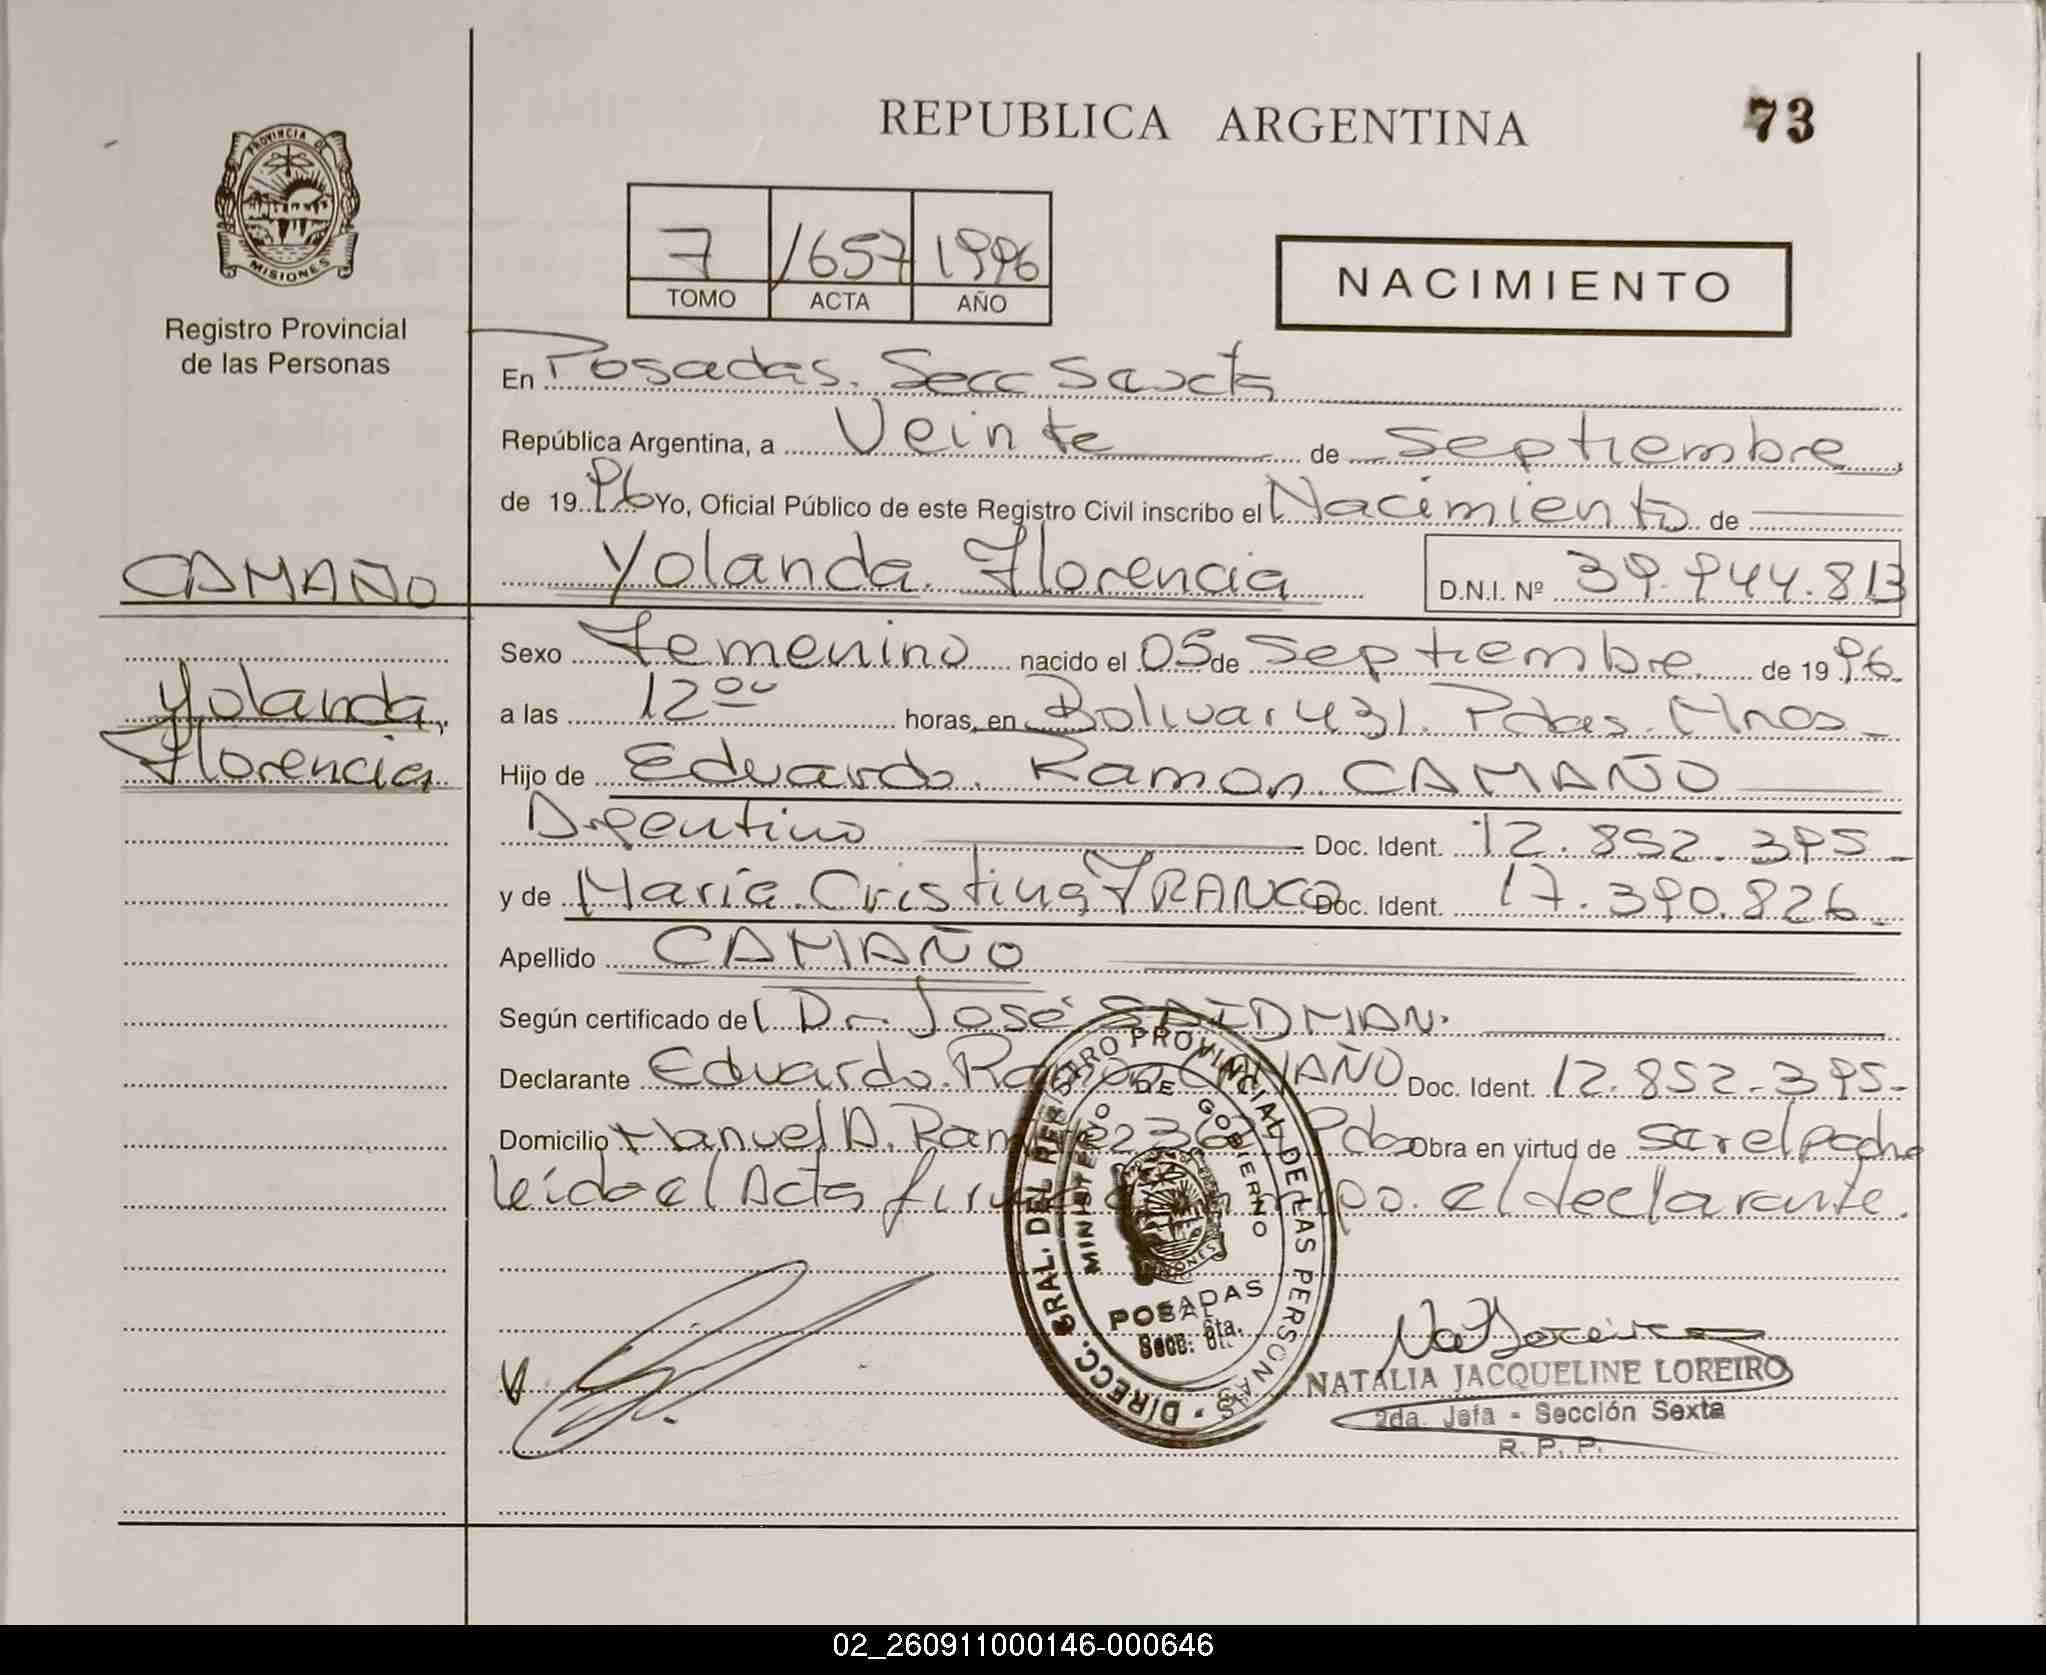 REPUBLICA ARGENTINA
73
PROVINCIA DE
MISIONES
Registro Provincial
de las Personas
7 1657 1996
TOMO ACTA AÑO
NACIMIENTO
En Posadas. Secc Sexta
República Argentina, a Veinte de Septiembre
de 1996 Yo, Oficial Público de este Registro Civil inscribo el Nacimiento de
CAMAÑO
Yolanda Florencia D.N.I. Nº 39.944.813
Yolanda
Florencia
Sexo Femenino nacido el 05 de Septiembre de 1996.
a las 12 00 horas, en Bolivar 431. Pdas. Mnes
Hijo de Eduardo Ramon CAMAÑO
Argentino Doc. Ident. 12.852.395
y de María Cristina FRANCO Doc. Ident. 17.390.826
Apellido CAMAÑO
Según certificado del Dr José SAIDMAN.
Declarante Eduardo Ramon CAMAÑO Doc. Ident. 12.852.395
Domicilio Manuel A. Pdas Obra en virtud de ser el padre
leída el Acta el declarante.
DIRECC. GRAL. DEL REGISTRO PROVINCIAL DE LAS PERSONAS
MINISTERIO DE GOBIERNO
POSADAS
Secc: 6ta.
NATALIA JACQUELINE LOREIRO
2da. Jefa - Sección Sexta
R. P. P.
02_260911000146-000646